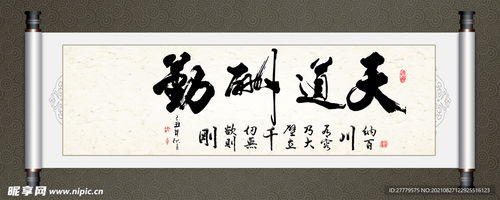 天道酬勤
纳百
川
有容
乃大
壁立
千
仞無
欲則
剛
昵享网 www.nipic.cn
ID:27779575 NO:20210827122925516123